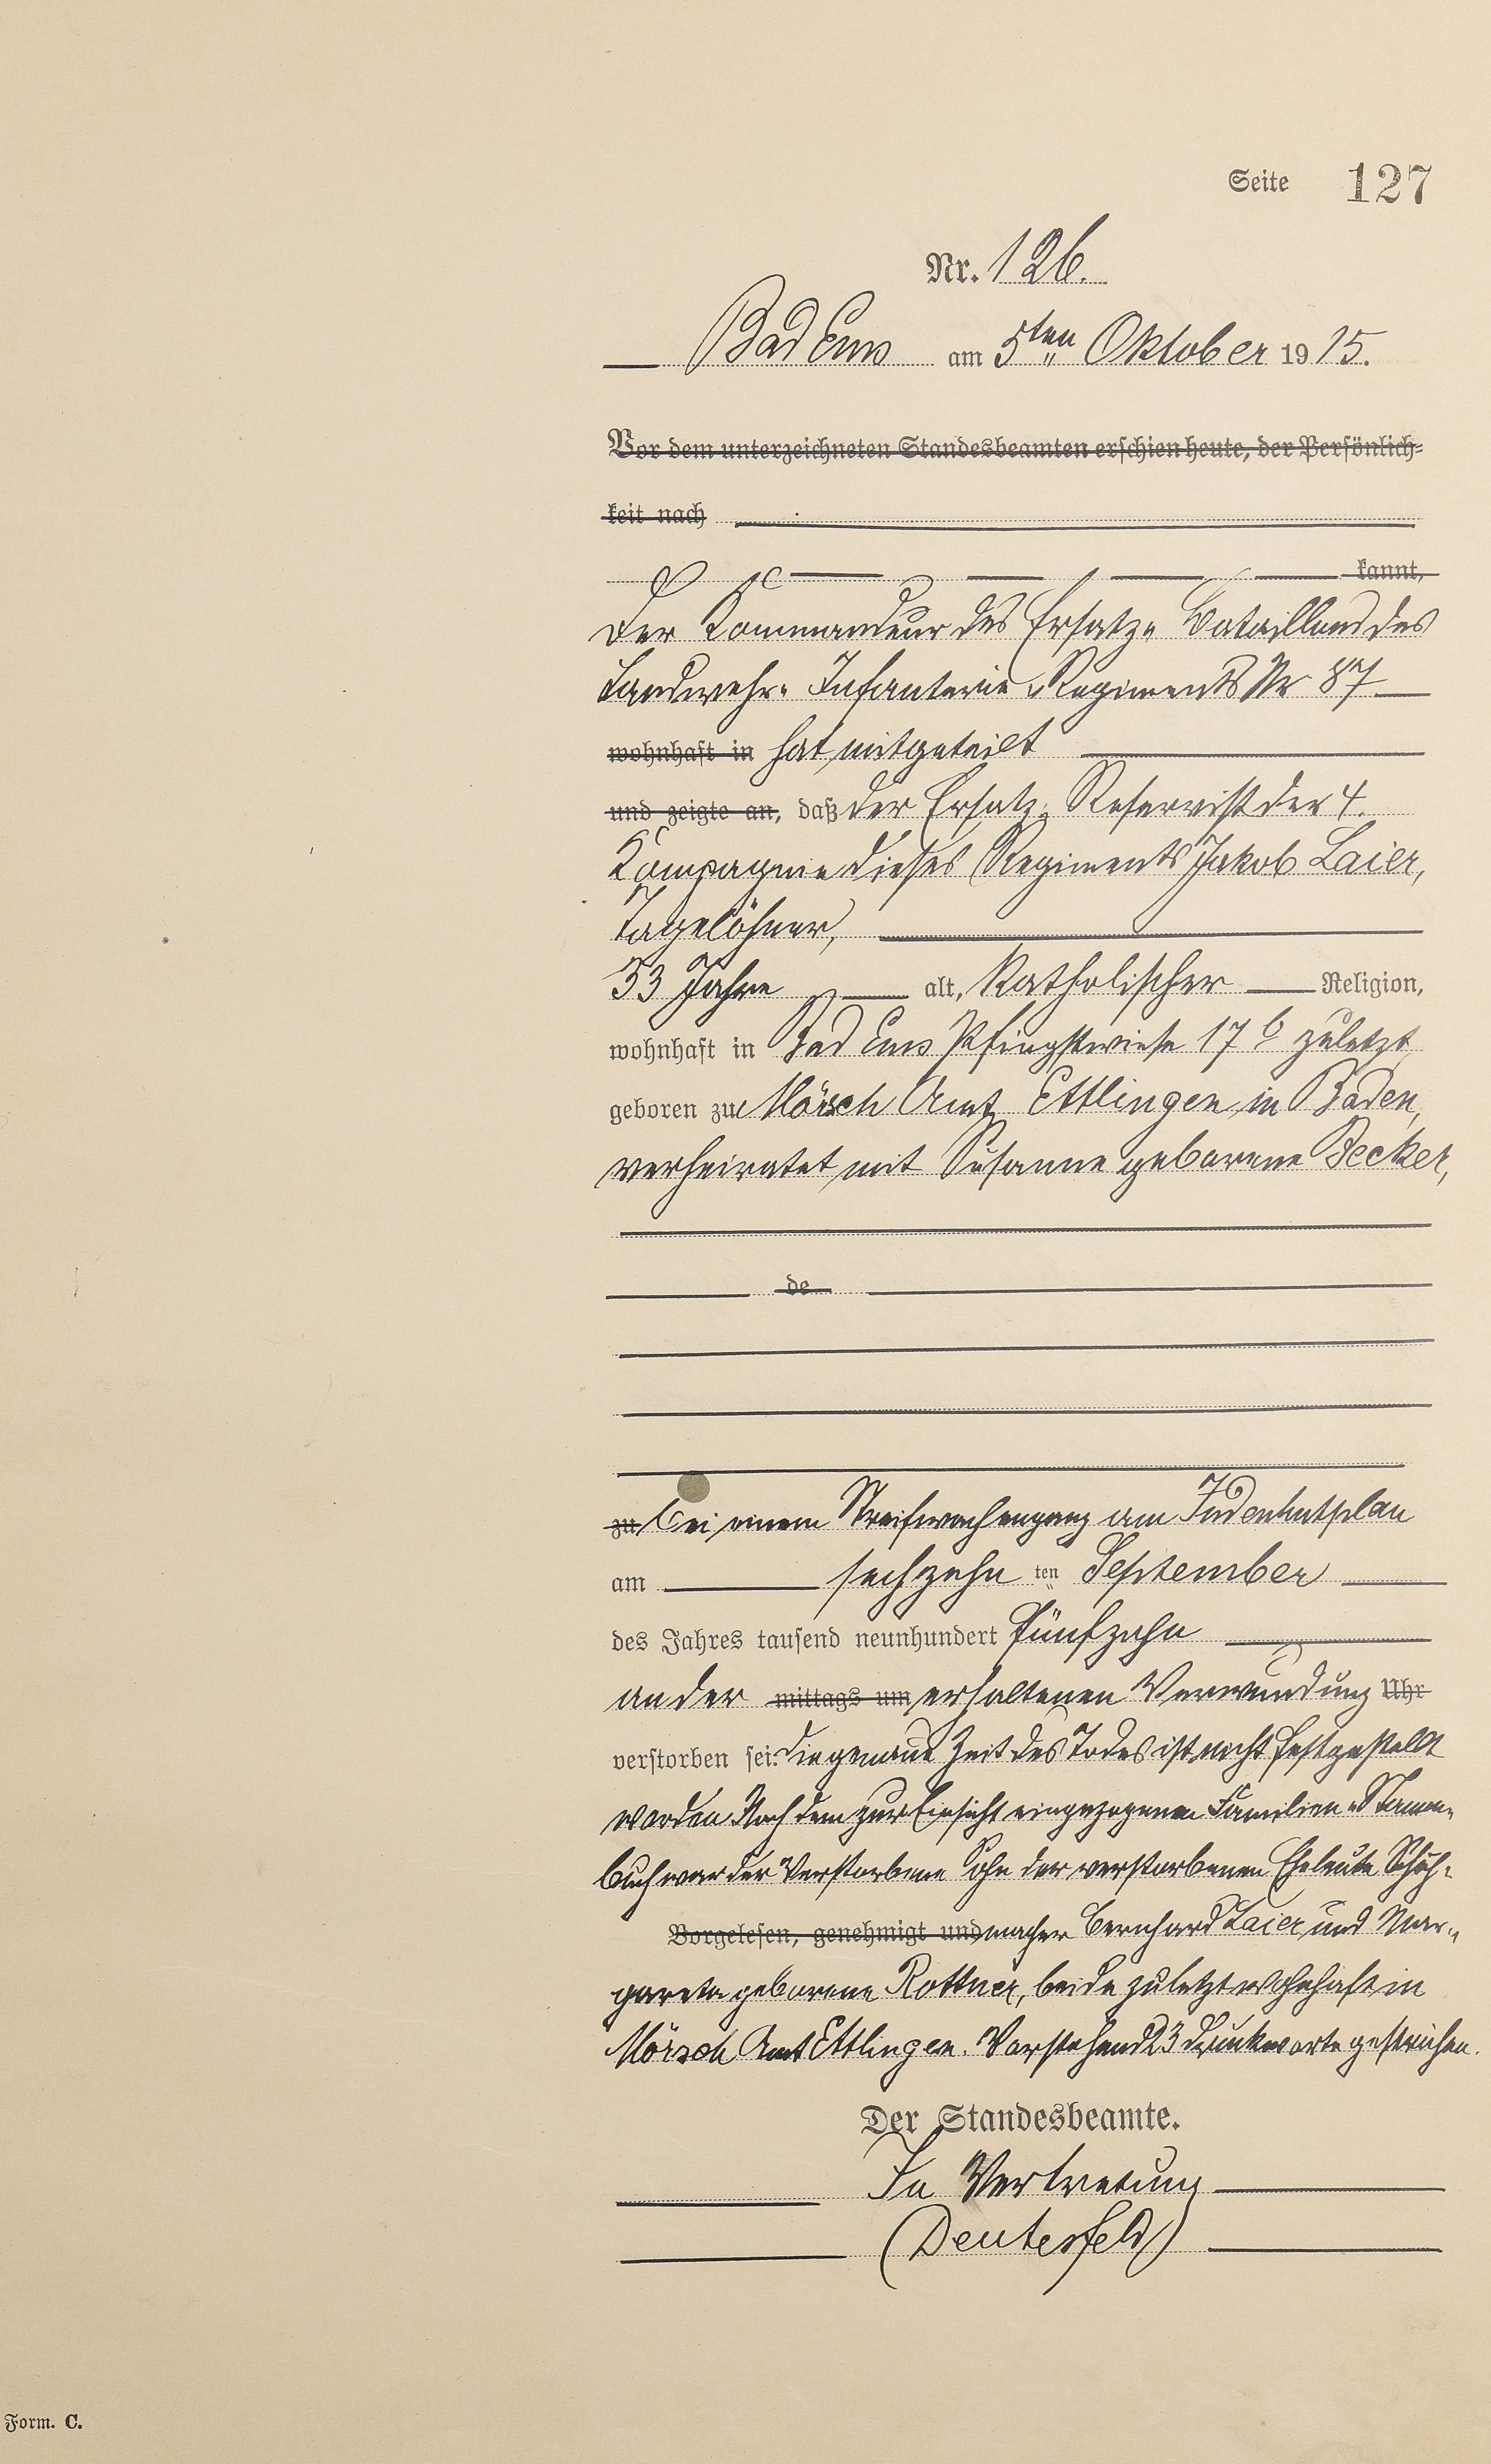 Seite 127
Nr. 126.
Bad Ems am 5ten Oktober 1915.
Vor dem unterzeichneten Standesbeamten erschien heute, der Persönlich-
keit nach
kannt,
Der Kommandeur des Ersatz- Bataillons des
Landwehr- Infanterie-Regiments Nr 87
wohnhaft in hat mitgeteilt
und zeigte an, daß der Ersatz-Reservist der 4.
Kompagnie dieses Regiments Jakob Laier,
Tagelöhner,
33 Jahre alt, Katholischer Religion,
wohnhaft in Bad Ems Pfingstwiese 17b zuletzt
geboren zu Mörsch Amt Ettlingen in Baden,
verheiratet mit Susanne geborene Becker,
de
zu bei einem Streifwachengang am Judenhutplan
am sechzehn ten September
des Jahres tausend neunhundert fünfzehn
an der mittags um erhaltenen Verwundung Uhr
verstorben sei. Die genaue Zeit des Todes ist nicht festgestellt
worden. Nach dem zur Einsicht eingezogenen Familien-Stamm-
buch war der Verstorbene Sohn der verstorbenen Eheleute Schuh-
Vorgelesen, genehmigt und macher Bernhard Laier und Mar-
gareta geborene Rottner, beide zuletzt wohnhaft in
Mörsch Amt Ettlingen. Vorstehend 23 Druckworte gestrichen.
Der Standesbeamte.
In Vertretung
(Deutesfeld)
Form. C.